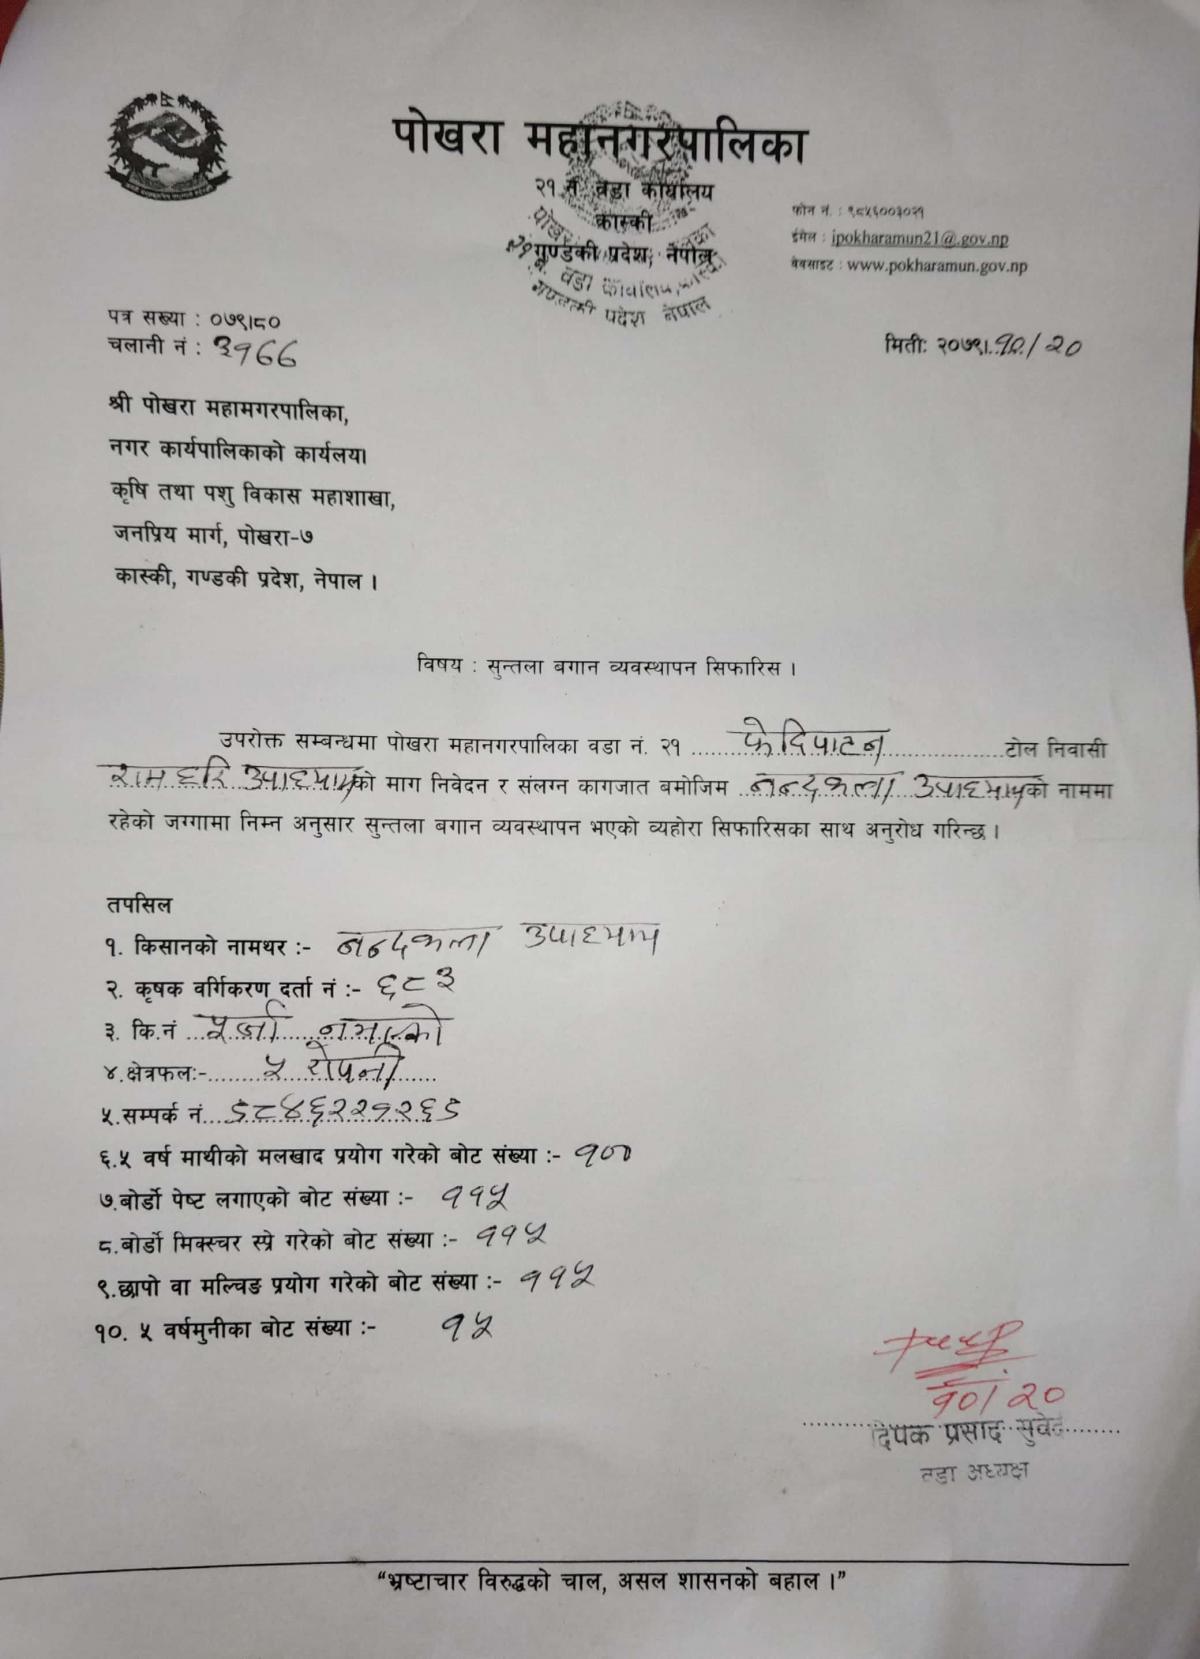 पोखरा महानगरपालिका
२१ नं. वडा कार्यालय
कास्की
गण्डकी प्रदेश, नेपाल
फोन नं. : ९८५६००३०२१
ईमेल : ipokharamun21@.gov.np
वेबसाइट : www.pokharamun.gov.np
वडा कार्यालय, कास्की
गण्डकी प्रदेश नेपाल
पत्र सख्या : ०७९।८०
चलानी नं : ३१६६
मिती: २०७९।१०/२०
श्री पोखरा महामगरपालिका,
नगर कार्यपालिकाको कार्यलय।
कृषि तथा पशु विकास महाशाखा,
जनप्रिय मार्ग, पोखरा-७
कास्की, गण्डकी प्रदेश, नेपाल ।
विषय : सुन्तला बगान व्यवस्थापन सिफारिस ।
उपरोक्त सम्बन्धमा पोखरा महानगरपालिका वडा नं. २१ फेदिपाटन टोल निवासी
राम हरि उपाध्यायको माग निवेदन र संलग्न कागजात बमोजिम नन्दकला उपाध्यायको नाममा
रहेको जग्गामा निम्न अनुसार सुन्तला बगान व्यवस्थापन भएको व्यहोरा सिफारिसका साथ अनुरोध गरिन्छ ।
तपसिल
१. किसानको नामथर :- नन्दकला उपाध्याय
२. कृषक वर्गिकरण दर्ता नं :- ६८३
३. कि.नं पूर्जा नभएको
४.क्षेत्रफलः- ५ रोपनी
५.सम्पर्क नं. ९८४६२२१२६९
६.५ वर्ष माथीको मलखाद प्रयोग गरेको बोट संख्या :- १००
७.बोर्डो पेष्ट लगाएको बोट संख्या :- ११५
८.बोर्डो मिक्स्चर स्प्रे गरेको बोट संख्या :- ११५
९.छापो वा मल्चिङ प्रयोग गरेको बोट संख्या :- ११५
१०. ५ वर्षमुनीका बोट संख्या :- १५
१०/२०
दिपक प्रसाद सुवेदी
वडा अध्यक्ष
“भ्रष्टाचार विरुद्धको चाल, असल शासनको बहाल ।”